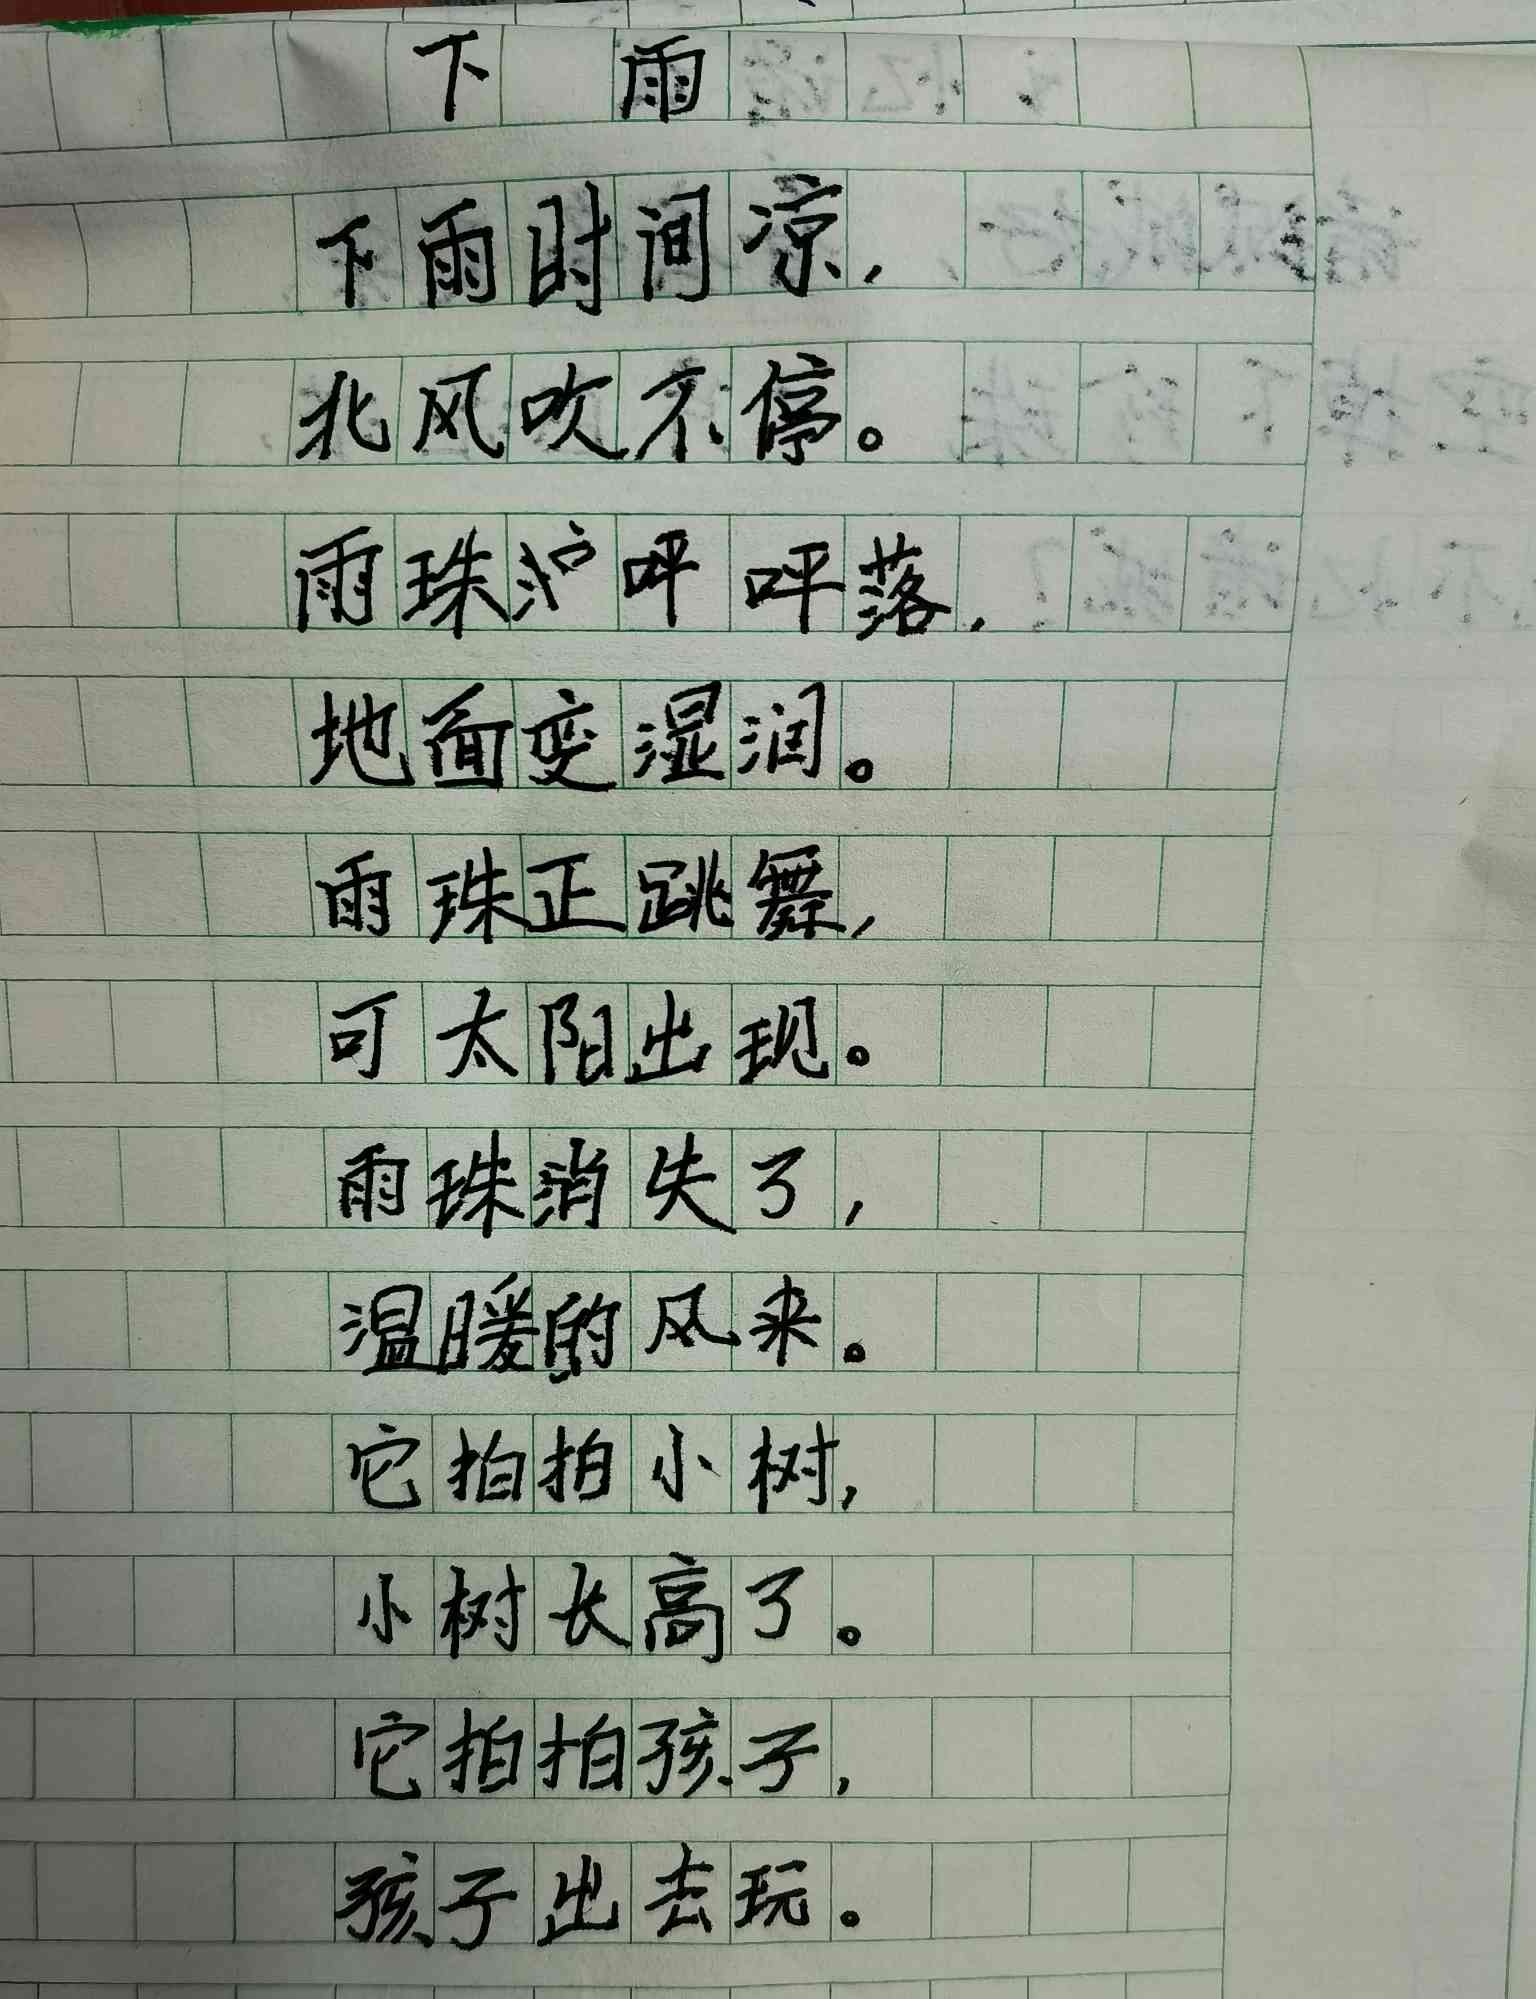 下雨
下雨时间凉,
北风吹不停。
雨珠沪呼呼落,
地面变湿润。
雨珠正跳舞,
可太阳出现。
雨珠消失了,
温暖的风来。
它拍拍小树,
小树长高了。
它拍拍孩子,
孩子出去玩。